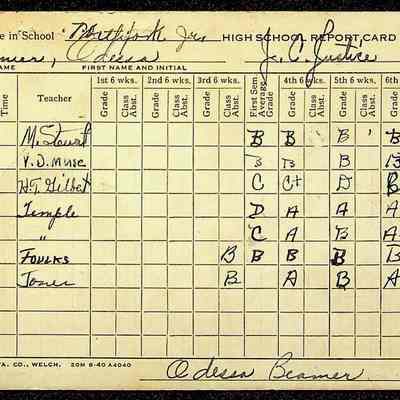 e in School Northfork Jrs HIGH SCHOOL REPORT CARD
amer, Odessa J. C. Justice
NAME FIRST NAME AND INITIAL
1st 6 wks. 2nd 6 wks. 3rd 6 wks. 4th 6 wks. 5th 6 wks. 6th
Time Teacher Grade Class Abst. Grade Class Abst. Grade Class Abst. First Sem. Average Grade Grade Class Abst. Grade Class Abst. Grade
M. Stewart B B B ' B
V. D. Muse B B B B
H. T. Gilbert C C+ D B
Temple D A A A
" C A B A
Foulks B B B B B
Jones B A B A
TA. CO., WELCH. 20M 8-40 A4040
Odessa Beamer